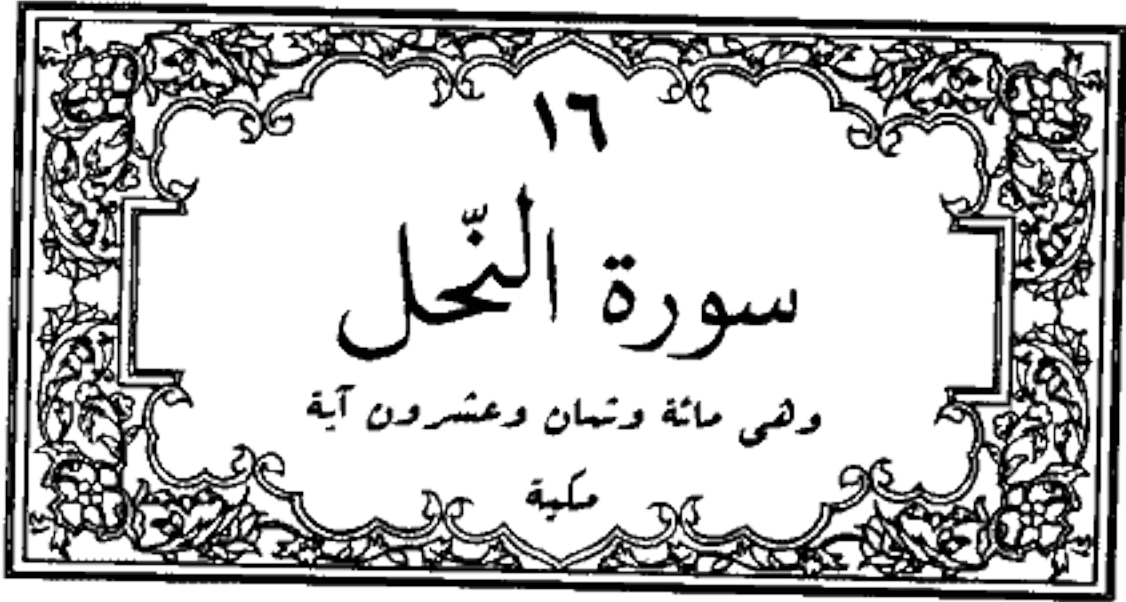 ١٦
سورة النّحل
وهى مائة وثمان وعشرون آية
مكية